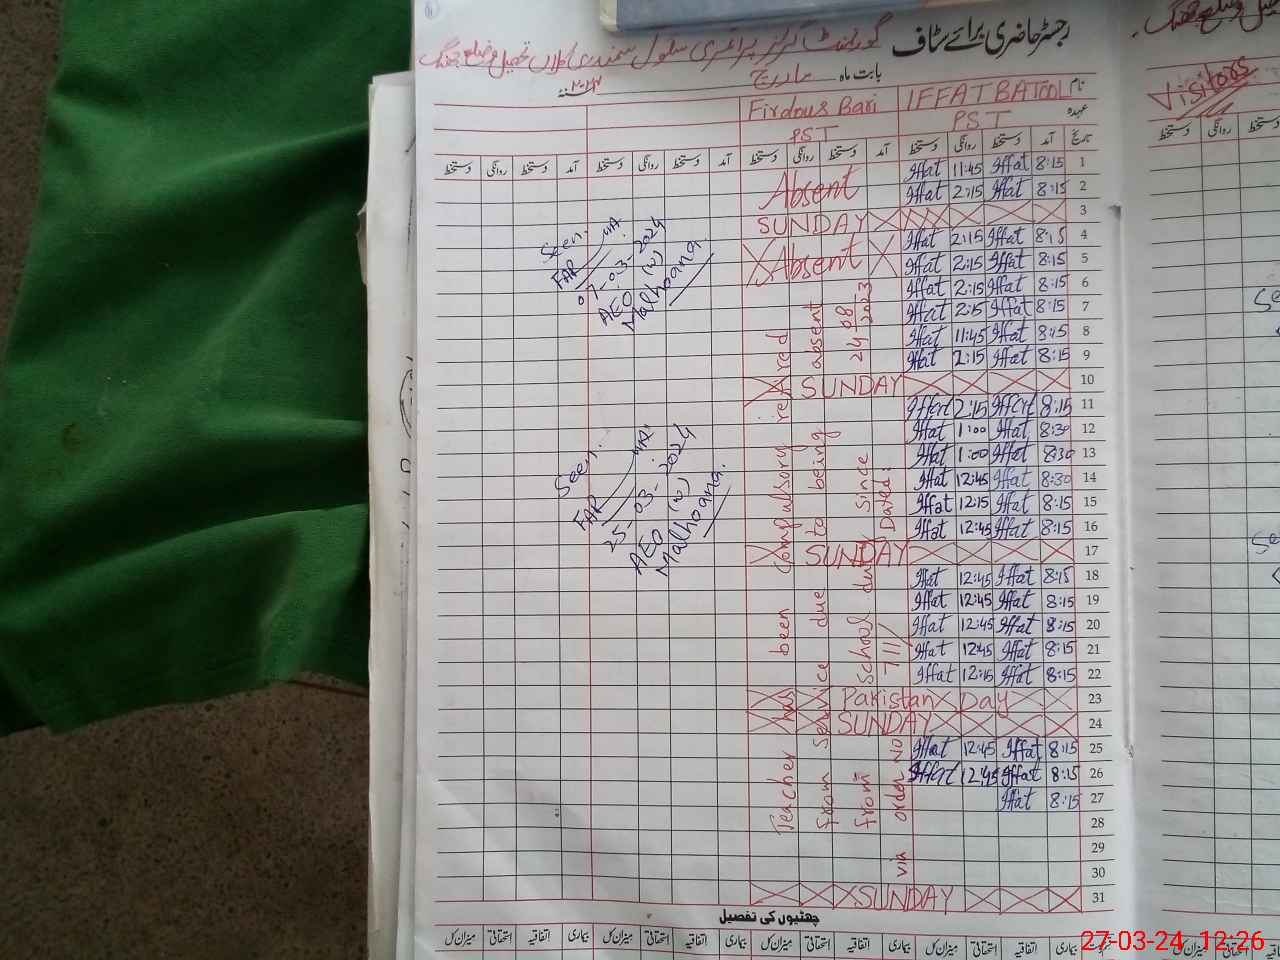 رجسٹر حاضری برائے سٹاف
گورنمنٹ گرلز پرائمری سکول سمندری کلاں تحصیل و ضلع جھنگ
بابت ماہ مارچ
Visitors
نام IFFAT BATOOL Firdous Bari
عہدہ PST PST
تاریخ آمد دستخط روانگی دستخط آمد دستخط روانگی دستخط آمد دستخط روانگی دستخط آمد دستخط روانگی دستخط
1 8:15 Iffat 11:45 Iffat
2 8:15 Iffat 2:15 Iffat
Absent
3 SUNDAY
4 8:15 Iffat 2:15 Iffat
5 8:15 Iffat 2:15 Iffat
Absent
6 8:15 Iffat 2:15 Iffat
7 8:15 Iffat 2:15 Iffat
8 8:15 Iffat 11:45 Iffat
9 8:15 Iffat 2:15 Iffat
10 SUNDAY
11 8:15 Iffat 2:15 Iffat
12 8:30 Iffat 1:00 Iffat
13 8:30 Iffat 1:00 Iffat
14 8:30 Iffat 12:45 Iffat
15 8:15 Iffat 12:15 Iffat
16 8:15 Iffat 12:45 Iffat
17 SUNDAY
18 8:15 Iffat 12:45 Iffat
19 8:15 Iffat 12:45 Iffat
20 8:15 Iffat 12:45 Iffat
21 8:15 Iffat 12:45 Iffat
22 8:15 Iffat 12:15 Iffat
23 Pakistan Day
24 SUNDAY
25 8:15 Iffat 12:45 Iffat
26 8:15 Iffat 12:45 Iffat
27 8:15 Iffat
28
29
30
31 SUNDAY
Teacher has been compulsory retired
from service due to being absent
from School duty since 24-08-2023
via order NO 711/ Dated:
Seen.
07-03-2024
AEO (W)
Malhoana.
Seen.
25-03-2024
AEO (W)
Malhoana.
چھٹیوں کی تفصیل
اتفاقیہ استحقاقی میزان کل بیماری اتفاقیہ استحقاقی میزان کل بیماری اتفاقیہ استحقاقی میزان کل بیماری اتفاقیہ استحقاقی میزان کل
27-03-24 12:26